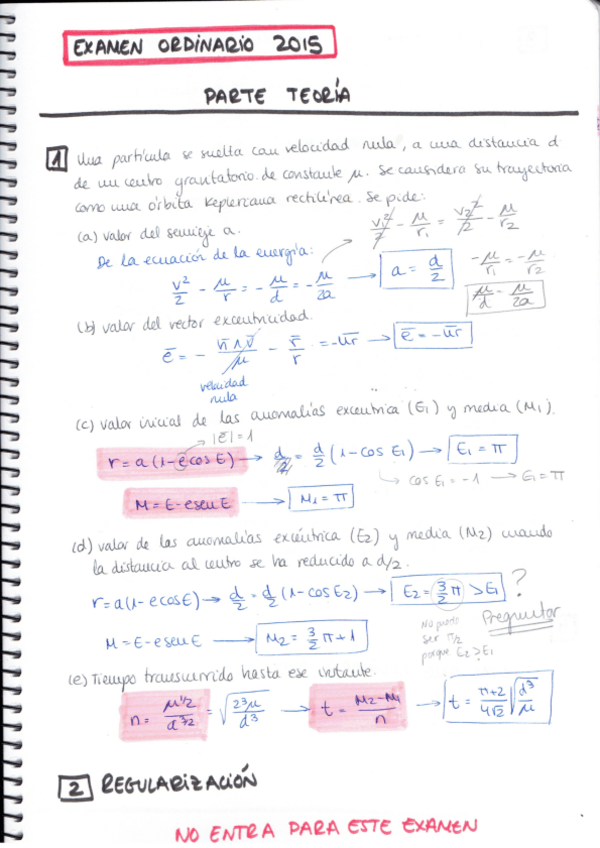 EXAMEN ORDINARIO 2015
PARTE TEORÍA
1 Una partícula se suelta con velocidad nula, a una distancia d
de un centro gravitatorio de constante μ. Se considera su trayectoria
como una órbita kepleriana rectilínea. Se pide:
(a) valor del semieje a.
v₁²/2 - μ/r₁ = v₂²/2 - μ/r₂
De la ecuación de la energía:
v²/2 - μ/r = -μ/d = -μ/2a → a = d/2
-μ/r₁ = -μ/r₂
μ/d - μ/2a
(b) valor del vector excentricidad.
ē = - h̄ ∧ v̄/μ - r̄/r = -ūr → ē = -ūr
velocidad
nula
(c) valor inicial de las anomalías excéntrica (E₁) y media (M₁).
|ē|=1
r = a(1-ecosE) → d = d/2 (1-cos E₁) → E₁ = π
cos E₁ = -1 → E₁=π
M = E-esenE → M₁ = π
(d) valor de las anomalías excéntrica (E₂) y media (M₂) cuando
la distancia al centro se ha reducido a d/2.
r = a(1-ecosE) → d/2 = d/2 (1-cosE₂) → E₂ = 3/2 π > E₁ ?
M = E-esenE → M₂ = 3/2 π + 1
No puede
ser π/2
porque E₂>E₁
Preguntar
(e) Tiempo transcurrido hasta ese instante.
n = μ^1/2/a^3/2 = √(2³μ/d³) → t = M₂-M₁/n → t = π+2/4√2 √(d³/μ)
2 REGULARIZACIÓN
NO ENTRA PARA ESTE EXAMEN